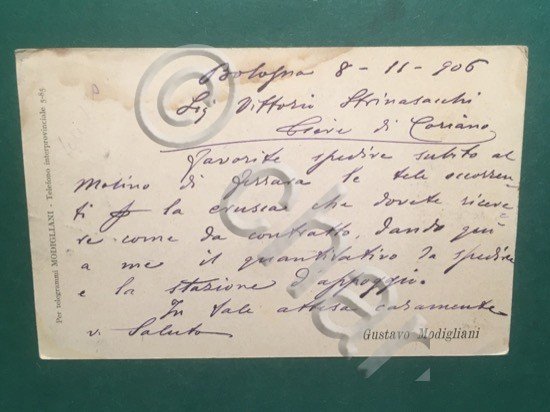 Bologna 8-11-906
Sig Vittorio Strinasacchi
Pieve di Coriano
Favorite spedire subito al
Molino di Ferrara le tele occorren
ti p la crusca che dovete riceve
re come da contratto, dando quì
a me il quantitativo da spedire
e la stazione d'appoggio.
In tale attesa caramente
v. Saluto
Gustavo Modigliani
Per telegrammi MODIGLIANI - Telefono interprovinciale 5-85
©